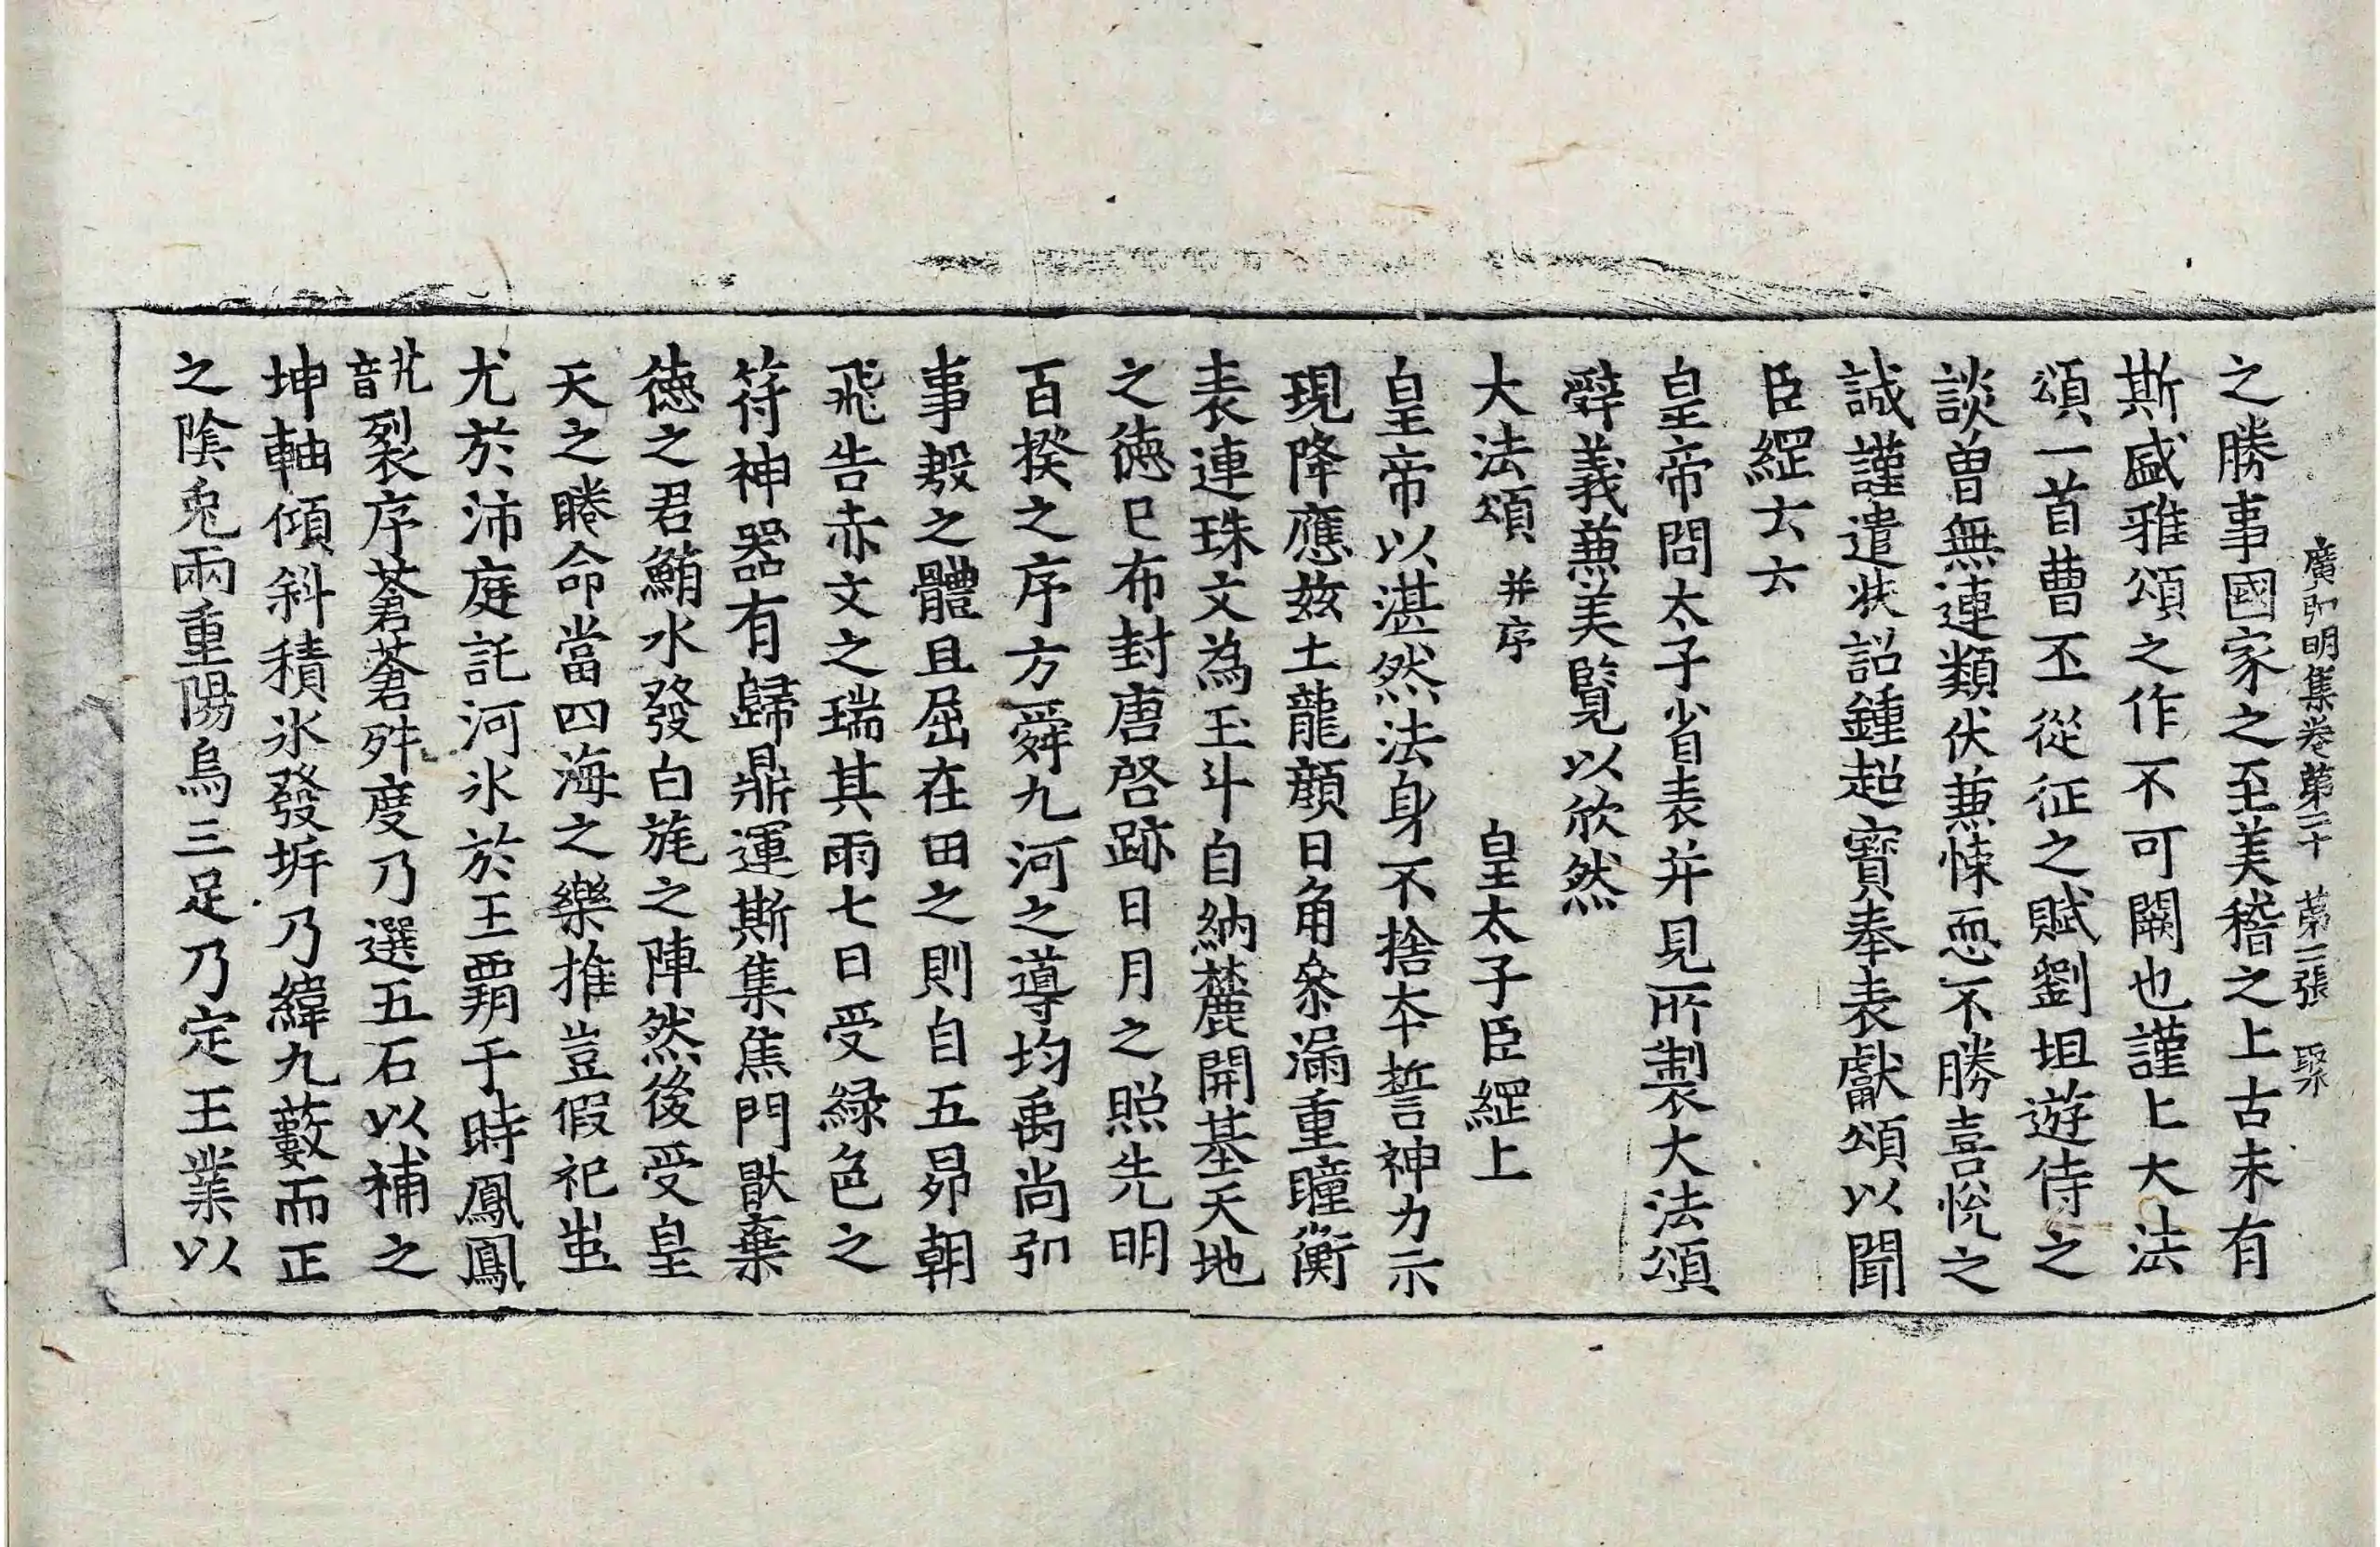 廣弘明集卷第二十 第二張 聚
之勝事國家之至美稽之上古未有
斯盛雅頌之作不可闕也謹上大法
頌一首曹丕從征之賦劉坦遊侍之
談曾無連類伏兼悚恧不勝喜悅之
誠謹遣狀詔鍾超寶奉表獻頌以聞
臣綱云云
皇帝問太子省表并見所製大法頌
辭義兼美覽以欣然
大法頌 并序 皇太子臣綱上
皇帝以湛然法身不捨本誓神力示
現降應玆土龍顔日角叅漏重瞳衡
表連珠文為玉斗自納麓開基天地
之德已布封唐啓跡日月之照先明
百揆之序方舜九河之導均禹尚弘
事殷之體且屈在田之則自五昴朝
飛告赤文之瑞其雨七日受綠色之
符神器有歸鼎運斯集焦門猒棄
德之君鮪水發白旄之陣然後受皇
天之睠命當四海之樂推豈假祀蚩
尤於沛庭託河氷於王霸于時鳳鳳
訧音尤裂序蒼蒼舛度乃選五石以補之
坤軸傾斜積氷發坼乃緯九藪而正
之陰兎兩重陽烏三足乃定王業以